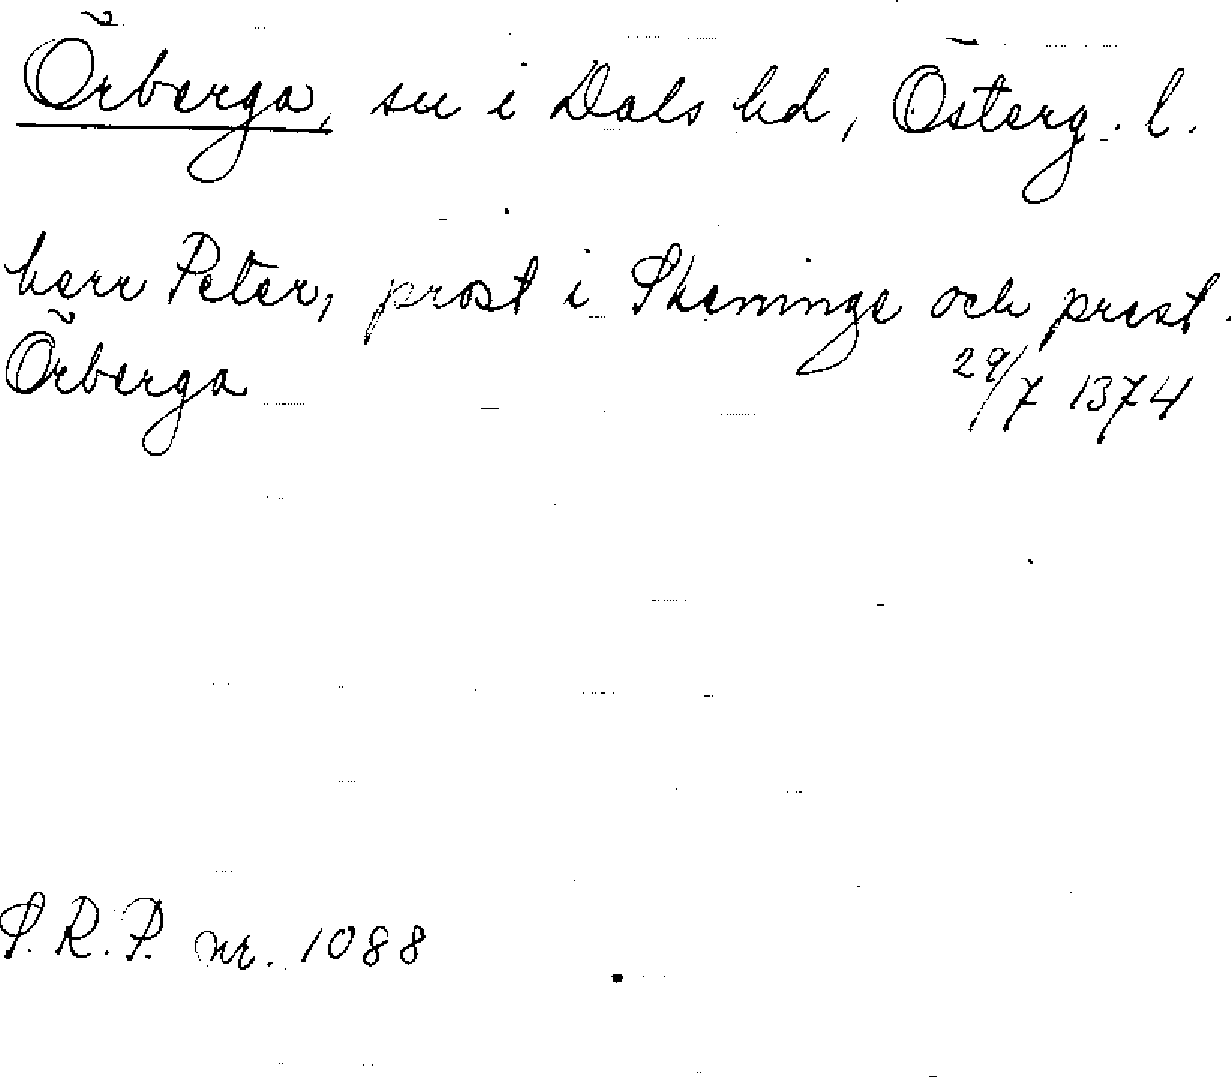 Örberga, sn i Dals hd, Österg. l.
herr Peter, prost i Skeninge och prest i
Örberga 29/7 1374
S.R.P. nr. 1088